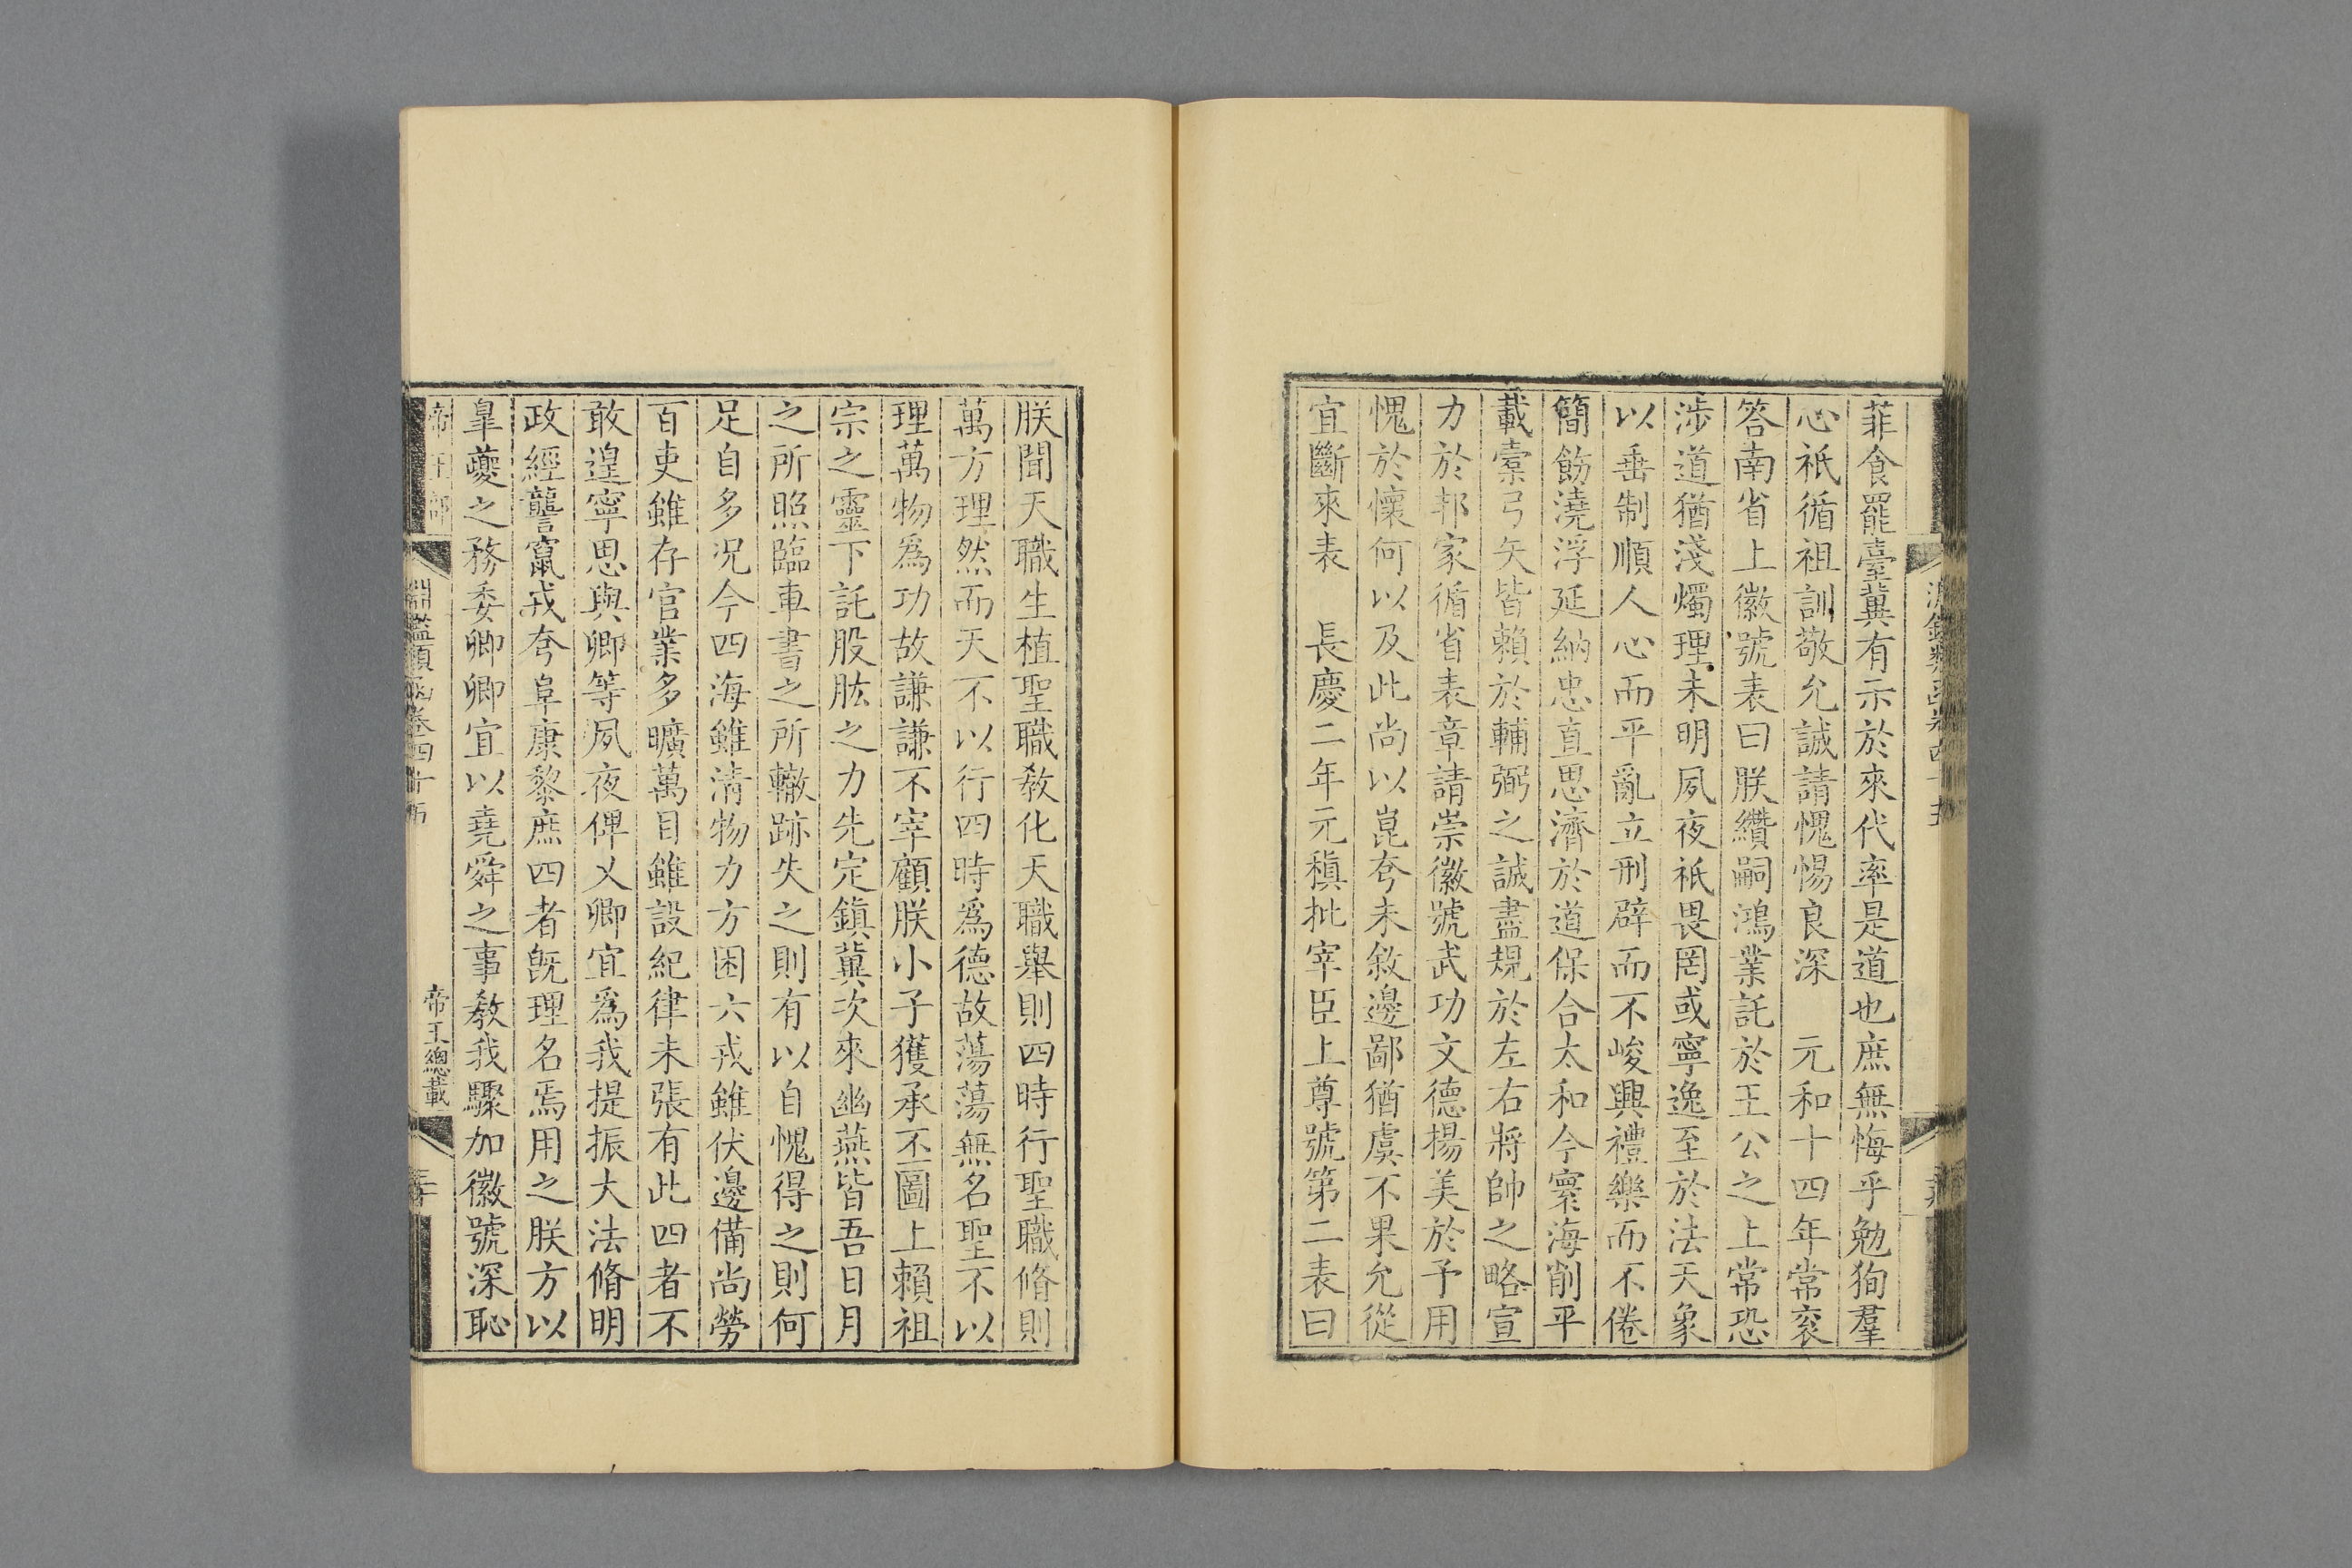 菲食罷臺冀有示於來代率是道也庶無悔乎勉狥羣
心祇循祖訓敬允誠請愧惕良深　元和十四年常衮
答南省上徽號表曰朕纘嗣鴻業託於王公之上常恐
涉道猶淺燭理未明夙夜祇畏罔或寧逸至於法天象
以垂制順人心而平亂立刑辟而不峻興禮樂而不倦
簡飭澆浮延納忠直思濟於道保合太和今寰海削平
載櫜弓矢皆賴於輔弼之誠盡規於左右將帥之略宣
力於邦家循省表章請崇徽號武功文德揚美於予用
愧於懷何以及此尚以崑夸未敘邊鄙猶虞不果允從
宜斷來表　長慶二年元稹批宰臣上尊號第二表曰
朕聞天職生植聖職教化天職舉則四時行聖職脩則
萬方理然而天不以行四時爲德故蕩蕩無名聖不以
理萬物爲功故謙謙不宰顧朕小子獲承丕圖上賴祖
宗之靈下託股肱之力先定鎮冀次來幽燕皆吾日月
之所照臨車書之所轍跡失之則有以自愧得之則何
足自多况今四海雖清物力方困六戎雖伏邊備尚勞
百吏雖存官業多曠萬目雖設紀律未張有此四者不
敢遑寧思與卿等夙夜俾乂卿宜爲我提振大法脩明
政經讋竄戎夸阜康黎庶四者旣理名焉用之朕方以
皐夔之務委卿卿宜以堯舜之事教我驟加徽號深恥
帝王部　淵鑑類函卷四十五　帝王總載